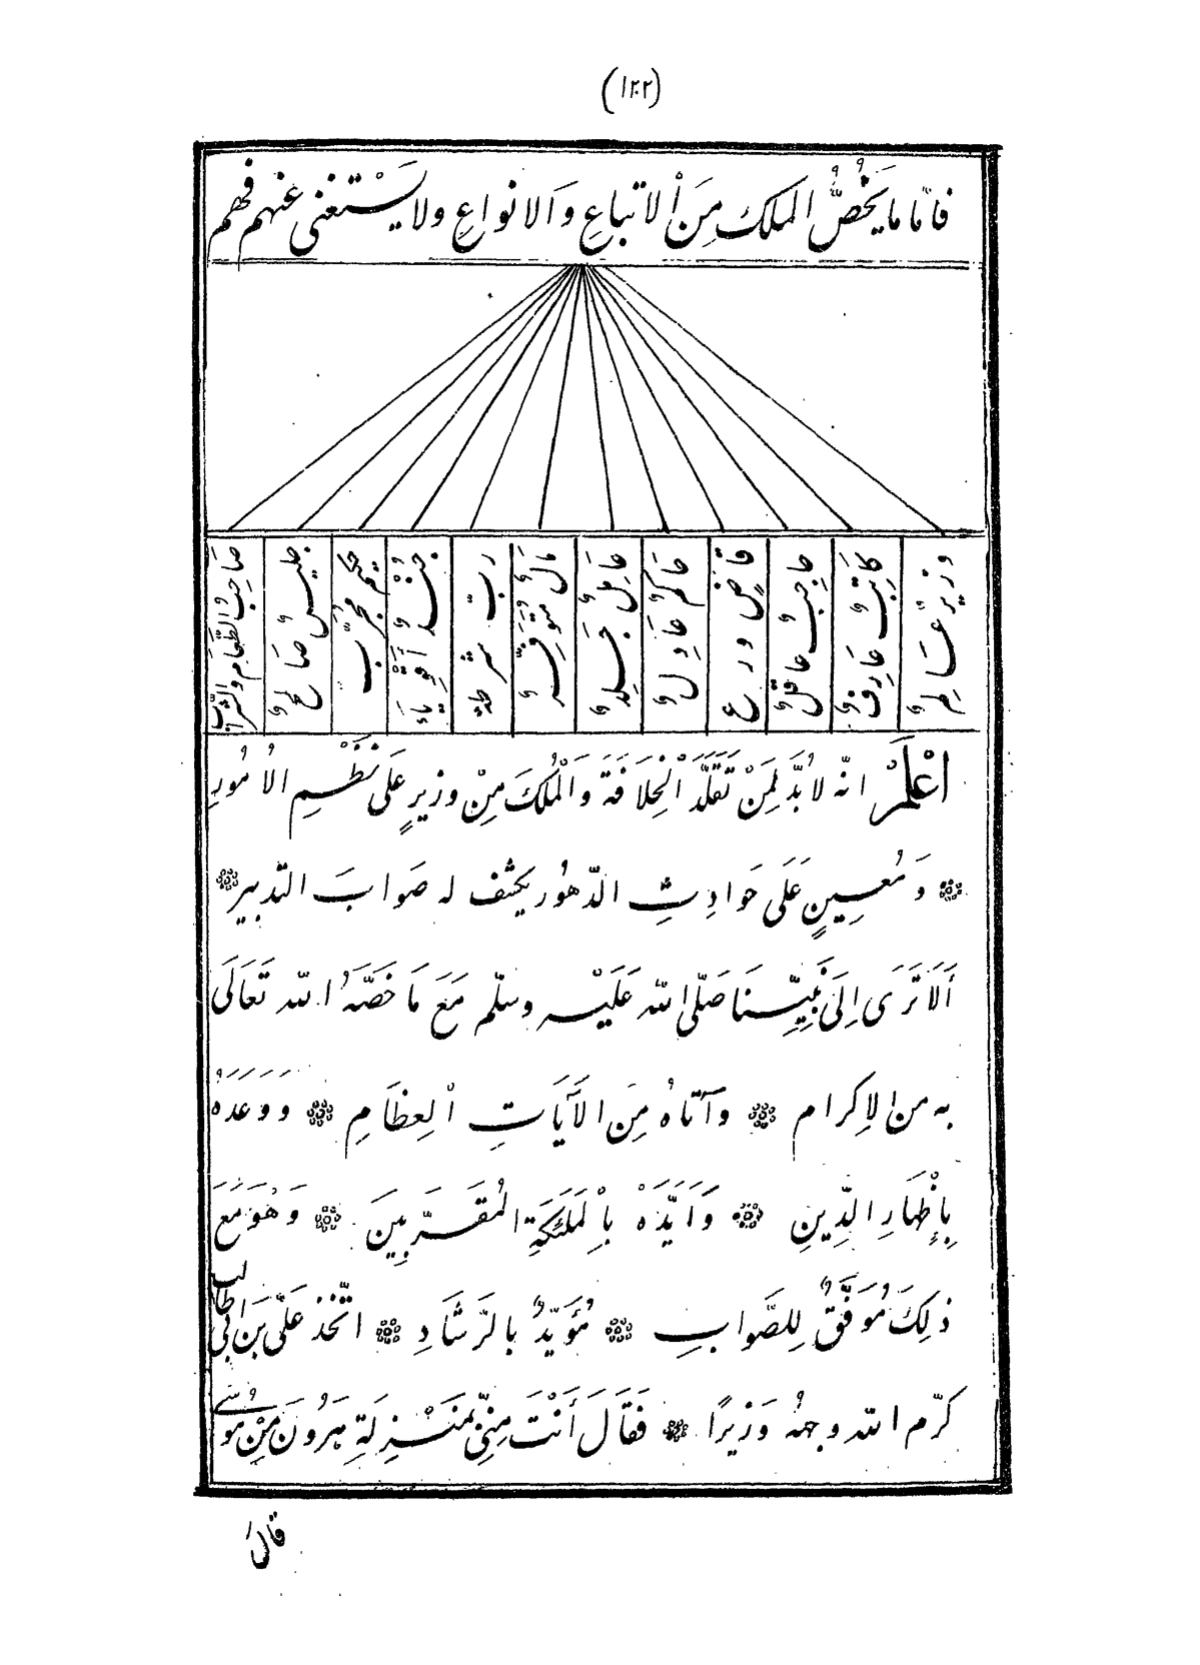 (١٢٢)
فَامّا ما يَخُصُّ الملك مِنَ الاتباعِ وَالانواعِ ولا يَسْتغنى عنهم فهم
وزيرٌ عَالمٌ
كَاتِبٌ عَارِفٌ
حاجِبٌ عاقلٌ
قاضٍ ورع
حَاكمٌ عَادِلٌ
عَامِلٌ جَلِدٌ
مالٌ مُتَوَفِّرٌ
ربّ شرطة
جُنْدٌ أَقْوِيَاءُ
حكيم مجرّب
جليسٌ صَالحٌ
صَاحِبُ الطّعَامِ والشراب
اعْلَمْ انّه لابُدَّ لِمَنْ تَقَلَّدَ الْخِلَافَةَ وَالْمُلكَ مِنْ وزيرٍ عَلَى نَظْمِ الامُورِ
۞ وَمُعِينٍ عَلَى حَوَادِثِ الدّهُور يكشف له صَوابَ التّدبير ۞
أَلَا تَرَى اِلَى نَبِيِّنَا صَلّى الله عَلَيْه وسلّم مَعَ مَا خَصَّهُ الله تَعَالَى
به من الاِكرام ۞ وآتاهُ مِنَ الآيَاتِ الْعِظَامِ ۞ وَوَعَدَهُ
بِإِظْهَارِ الدِّينِ ۞ وَأَيَّدَهُ بِالْمَلئكَةِ المُقَرَّبِينَ ۞ وَهُوَ مَعَ
ذلِكَ مُوَفَّقٌ لِلصَّوابِ ۞ مُؤَيَّدٌ بالرَّشَادِ ۞ اتّخَذ عَلَّى بنَ ابى طالب
كرّم الله وجهُه وَزيرًا ۞ فَقَالَ أَنْتَ مِنّى بمَنْزِلَةِ هَرُونَ مِنْ مُوسَى
قالَ